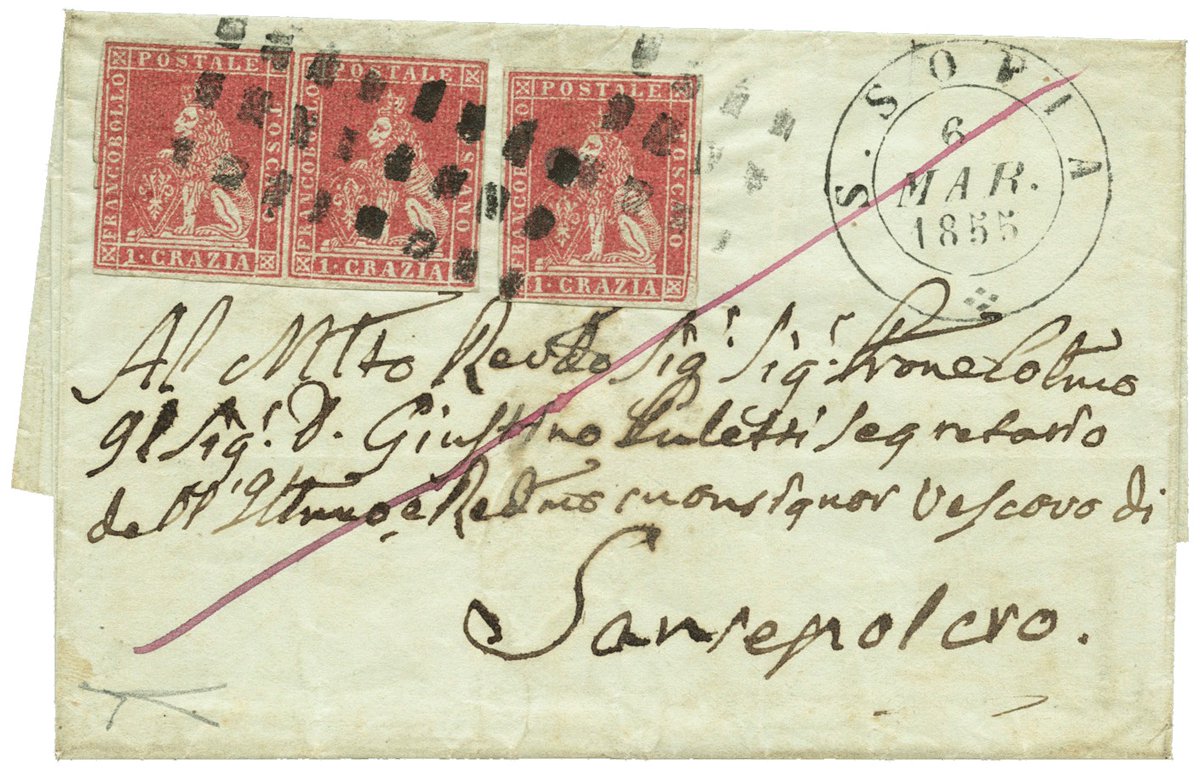 FRANCOBOLLO POSTALE TOSCANO 1·CRAZIA
FRANCOBOLLO POSTALE TOSCANO 1·CRAZIA
FRANCOBOLLO POSTALE TOSCANO 1·CRAZIA
S. SOFIA
6
MAR.
1855
Al Mlto Revdo Sigr. Sigr. Prone Colmo
Il Sigr. D. Giustino Puletti Segretario
dell'Illmo e Revdmo monsignor Vescovo di
Sansepolcro.